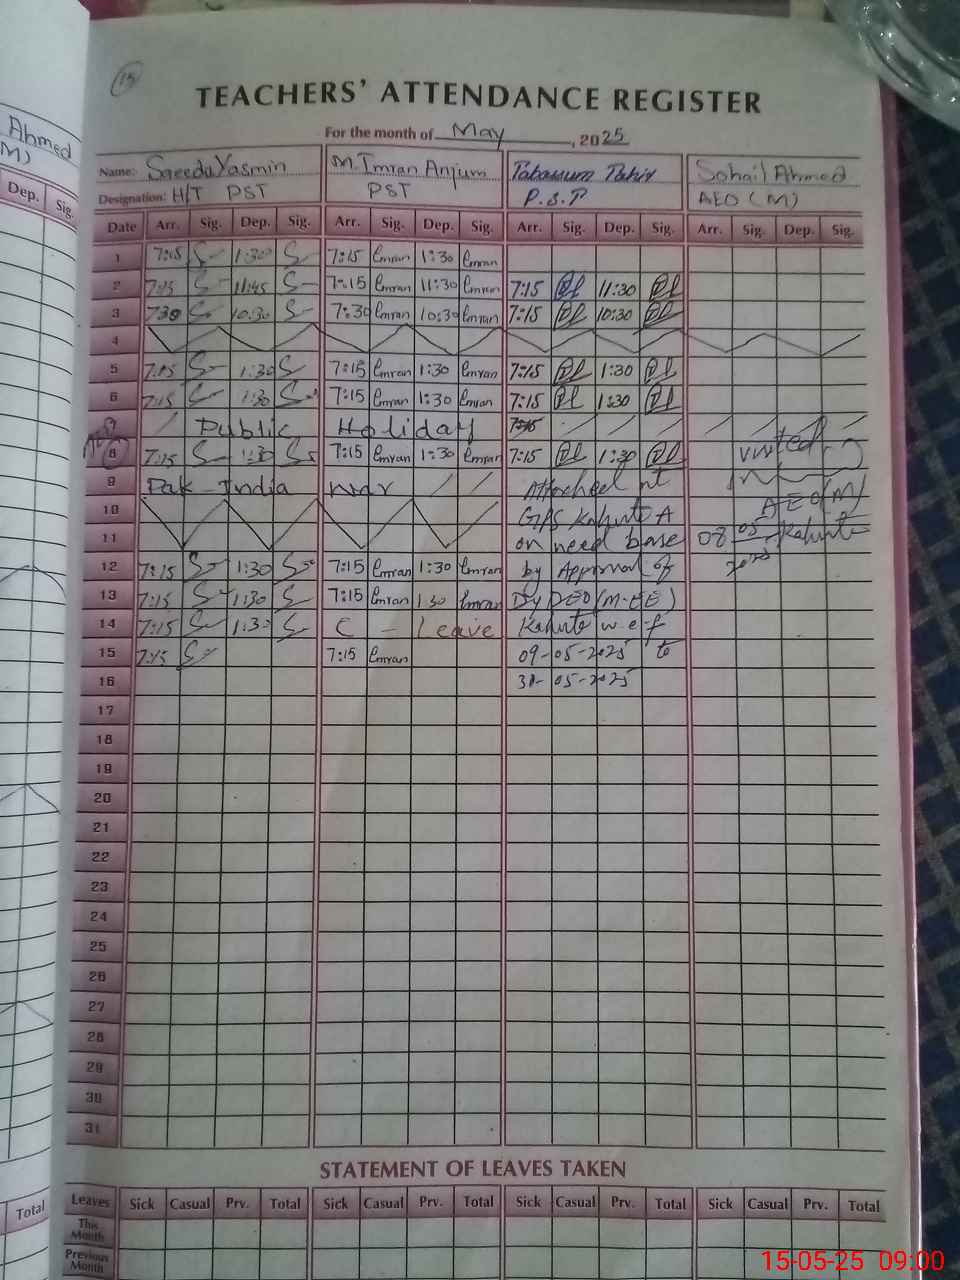 15
TEACHERS' ATTENDANCE REGISTER
For the month of May, 2025
Ahmed
M)
Name: Saeeda Yasmin M. Imran Anjum Tabassum Tahir Sohail Ahmed
Designation: H/T PST PST P.S.T AEO (M)
Dep. Sig.
Date Arr. Sig. Dep. Sig. Arr. Sig. Dep. Sig. Arr. Sig. Dep. Sig. Arr. Sig. Dep. Sig.
1 7:15 1:30 7:15 Emran 1:30 Emran
2 7:15 11:45 7:15 Emran 11:30 Emran 7:15 11:30
3 7:30 10:30 7:30 Emran 10:30 Emran 7:15 10:30
4
5 7:15 1:30 7:15 Emran 1:30 Emran 7:15 1:30
6 7:15 1:30 7:15 Emran 1:30 Emran 7:15 1:30
7 Public Holiday 7:15
8 7:15 1:30 7:15 Emran 1:30 Emran 7:15 1:30 visited
9 Pak - India war Attached at
10 GPS Kahuta A AEO(M)
11 on need base 08 05 Kahuta
12 7:15 1:30 7:15 Emran 1:30 Emran by Approval of 2025
13 7:15 1:30 7:15 Emran 1:30 Emran Dy DEO (M-EE)
14 7:15 1:30 C - Leave Kahuta w.e.f
15 7:15 7:15 Emran 09-05-2025 to
16 31-05-2025
17
18
19
20
21
22
23
24
25
26
27
28
29
30
31
STATEMENT OF LEAVES TAKEN
Total
Leaves Sick Casual Prv. Total Sick Casual Prv. Total Sick Casual Prv. Total Sick Casual Prv. Total
This Month
Previous Month
15-05-25 09:00